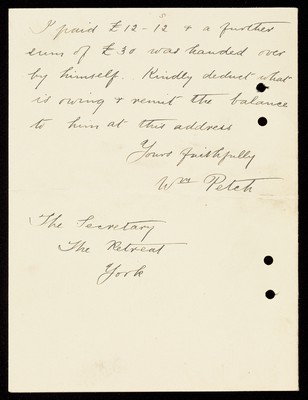 I paid £12-12 & a further
sum of £30 was handed over
by himself. Kindly deduct what
is owing & remit the balance
to him at this address
Yours faithfully
Wm Petch
The Secretary
The Retreat
York